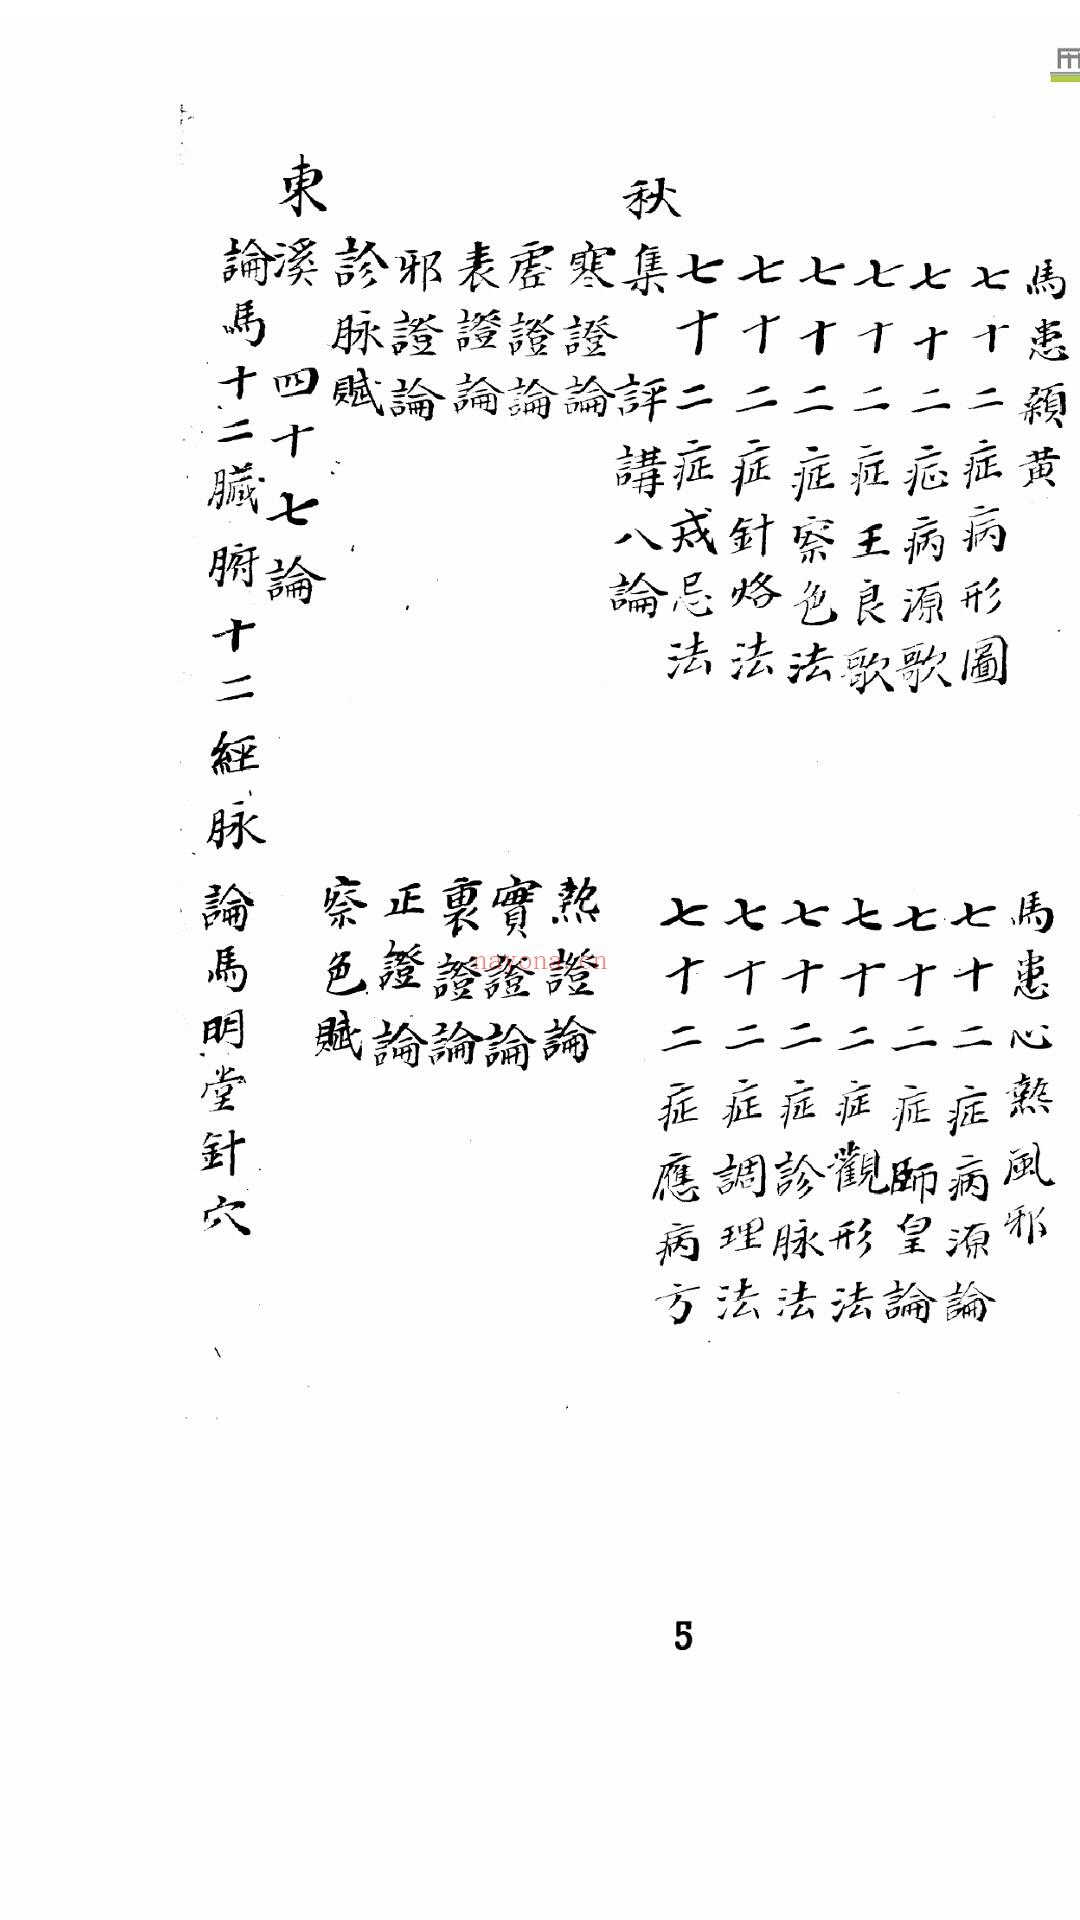 馬患顙黄
馬患心熱風邪
七十二症病形圖
七十二症病源論
七十二症病源歌
七十二症師皇論
七十二症王良歌
七十二症觀形法
七十二症察色法
七十二症診脉法
七十二症針烙法
七十二症調理法
七十二症戒忌法
七十二症應病方
秋
集評講八論
寒證論
熱證論
虛證論
實證論
表證論
裏證論
邪證論
正證論
診脉賦
察色賦
東
溪四十七論
論馬十二臟腑十二經脉
論馬明堂針穴
nayona.cn
5